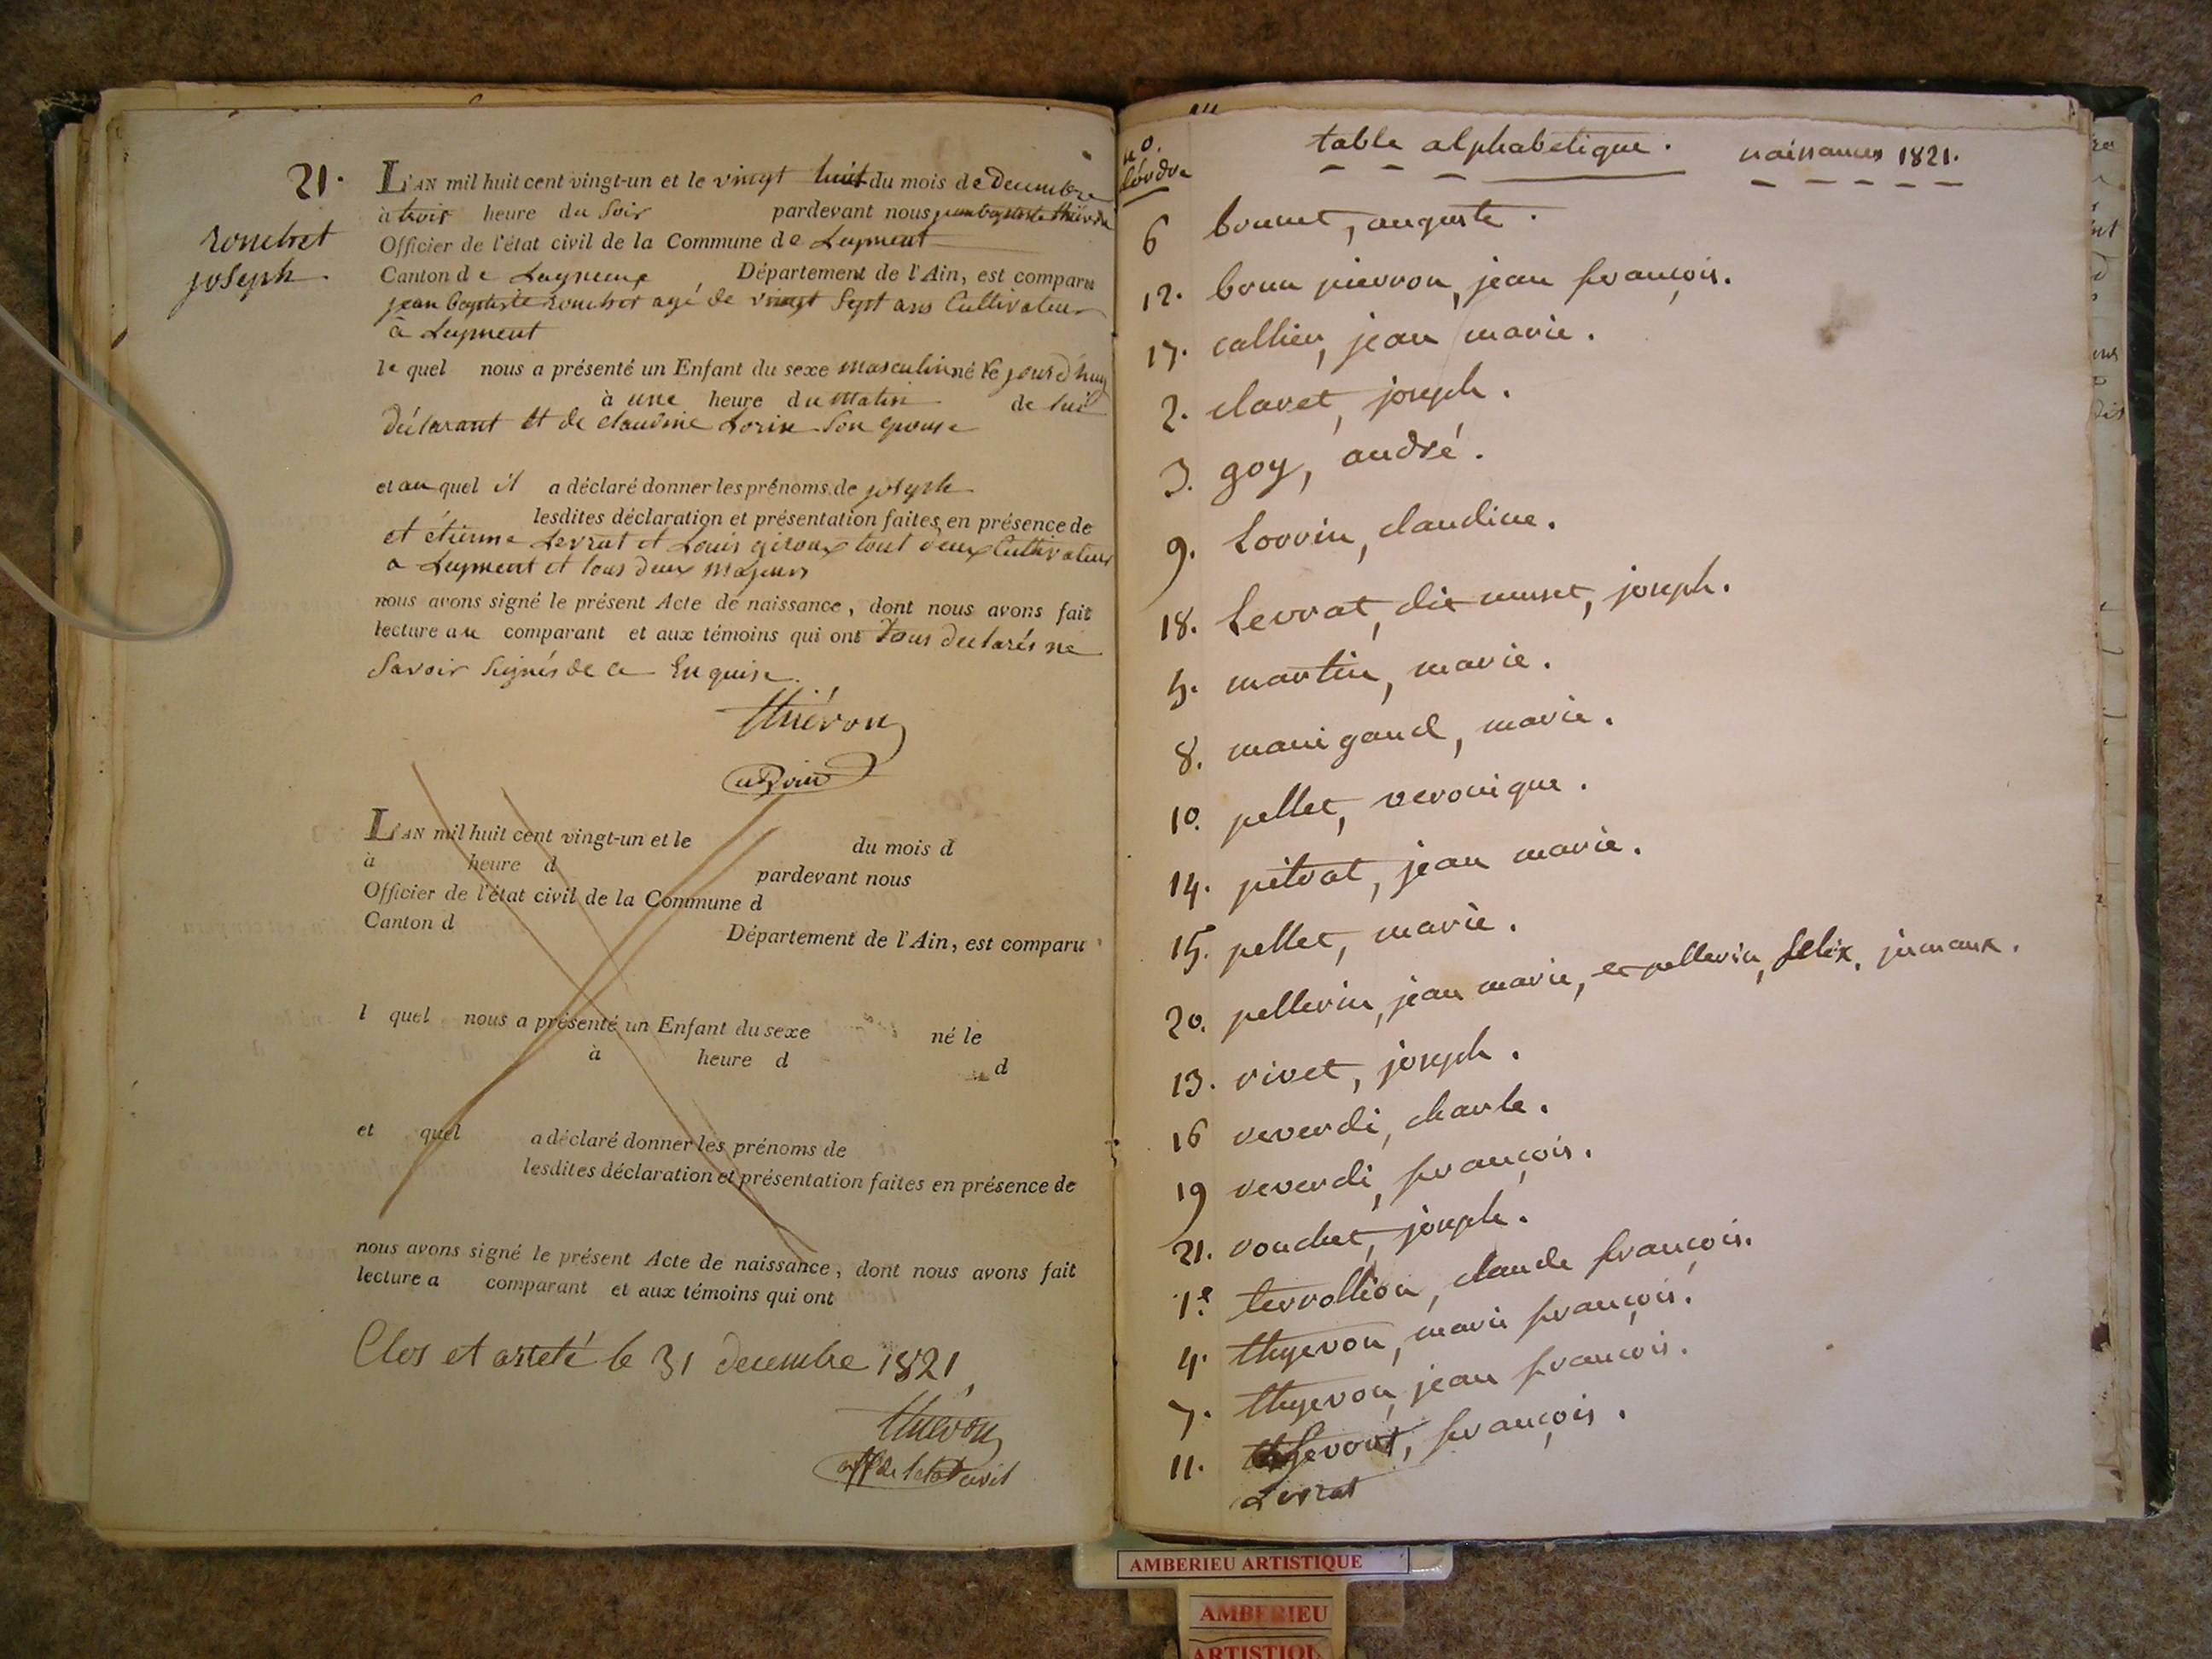 21.
ronchet
joseph
L'AN mil huit cent vingt-un et le vingt huit du mois de Decembre
à trois heure du Soir pardevant nous jean baptiste thiévon
Officier de l'état civil de la Commune de Leyment
Canton de Lagneux Département de l'Ain, est comparu
jean baptiste ronchet agé de vingt Sept ans Cultivateur
à Leyment
le quel nous a présenté un Enfant du sexe masculin né le jour d'huy
à une heure du matin de lui
déclarant et de claudine Lorin Son épouse
et au quel il a déclaré donner les prénoms de joseph
lesdites déclaration et présentation faites en présence de
et étienne Levrat et Louis giroux tout deux Cultivateurs
a Leyment et tous deux majeurs
nous avons signé le présent Acte de naissance, dont nous avons fait
lecture au comparant et aux témoins qui ont tous declarés ne
Savoir Signés de ce Enquise.
thiévon
L'AN mil huit cent vingt-un et le du mois d
à heure d pardevant nous
Officier de l'état civil de la Commune d
Canton d Département de l'Ain, est comparu
l quel nous a présenté un Enfant du sexe né le
à heure d d
et quel a déclaré donner les prénoms de
lesdites déclaration et présentation faites en présence de
nous avons signé le présent Acte de naissance, dont nous avons fait
lecture a comparant et aux témoins qui ont
Clos et arreté le 31 decembre 1821
thiévon
off de letat civil
no.
d'ordre
table alphabetique. naissances 1821.
6 bonnet, auguste.
12. brun pierron, jean françois.
17. callien, jean marie.
2. clavet, joseph.
3. goy, andré.
9. Lorrin, claudine.
18. Levrat, dit muset, joseph.
5. martin, marie.
8. manigand, marie.
10. pellet, veronique.
14. pitrat, jean marie.
15. pellet, marie.
20. pellerin, jean marie, et pellerin, felix, jumaux.
13. rivet, joseph.
16 reverdi, charle.
19 reverdi, françois.
21. ronchet, joseph.
1e. terrollion, claude françois.
4. thyevon, marie françois.
7. thyevon, jean françois.
11. françois.
Levrat
AMBERIEU ARTISTIQUE
AMBERIEU
ARTISTIQU